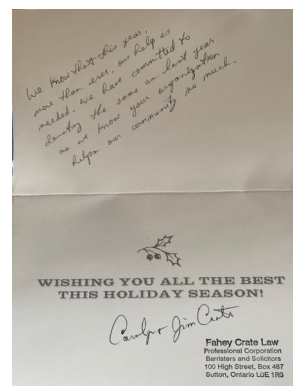 We know that this year,
more than ever, our help is
needed. We have committed to
donating the same as last year
as we know your organization
helps our community so much.
WISHING YOU ALL THE BEST
THIS HOLIDAY SEASON!
Carolyn & Jim Crate
Fahey Crate Law
Professional Corporation
Barristers and Solicitors
100 High Street, Box 487
Sutton, Ontario L0E 1R0